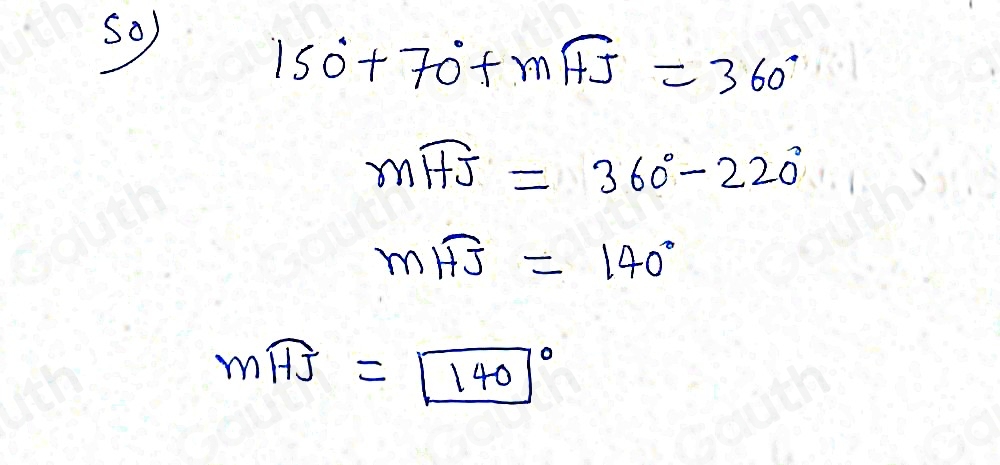 So)
150° + 70° + m\overset{\frown}{HJ} = 360°
m\overset{\frown}{HJ} = 360° - 220°
m\overset{\frown}{HJ} = 140°
m\overset{\frown}{HJ} = 140°